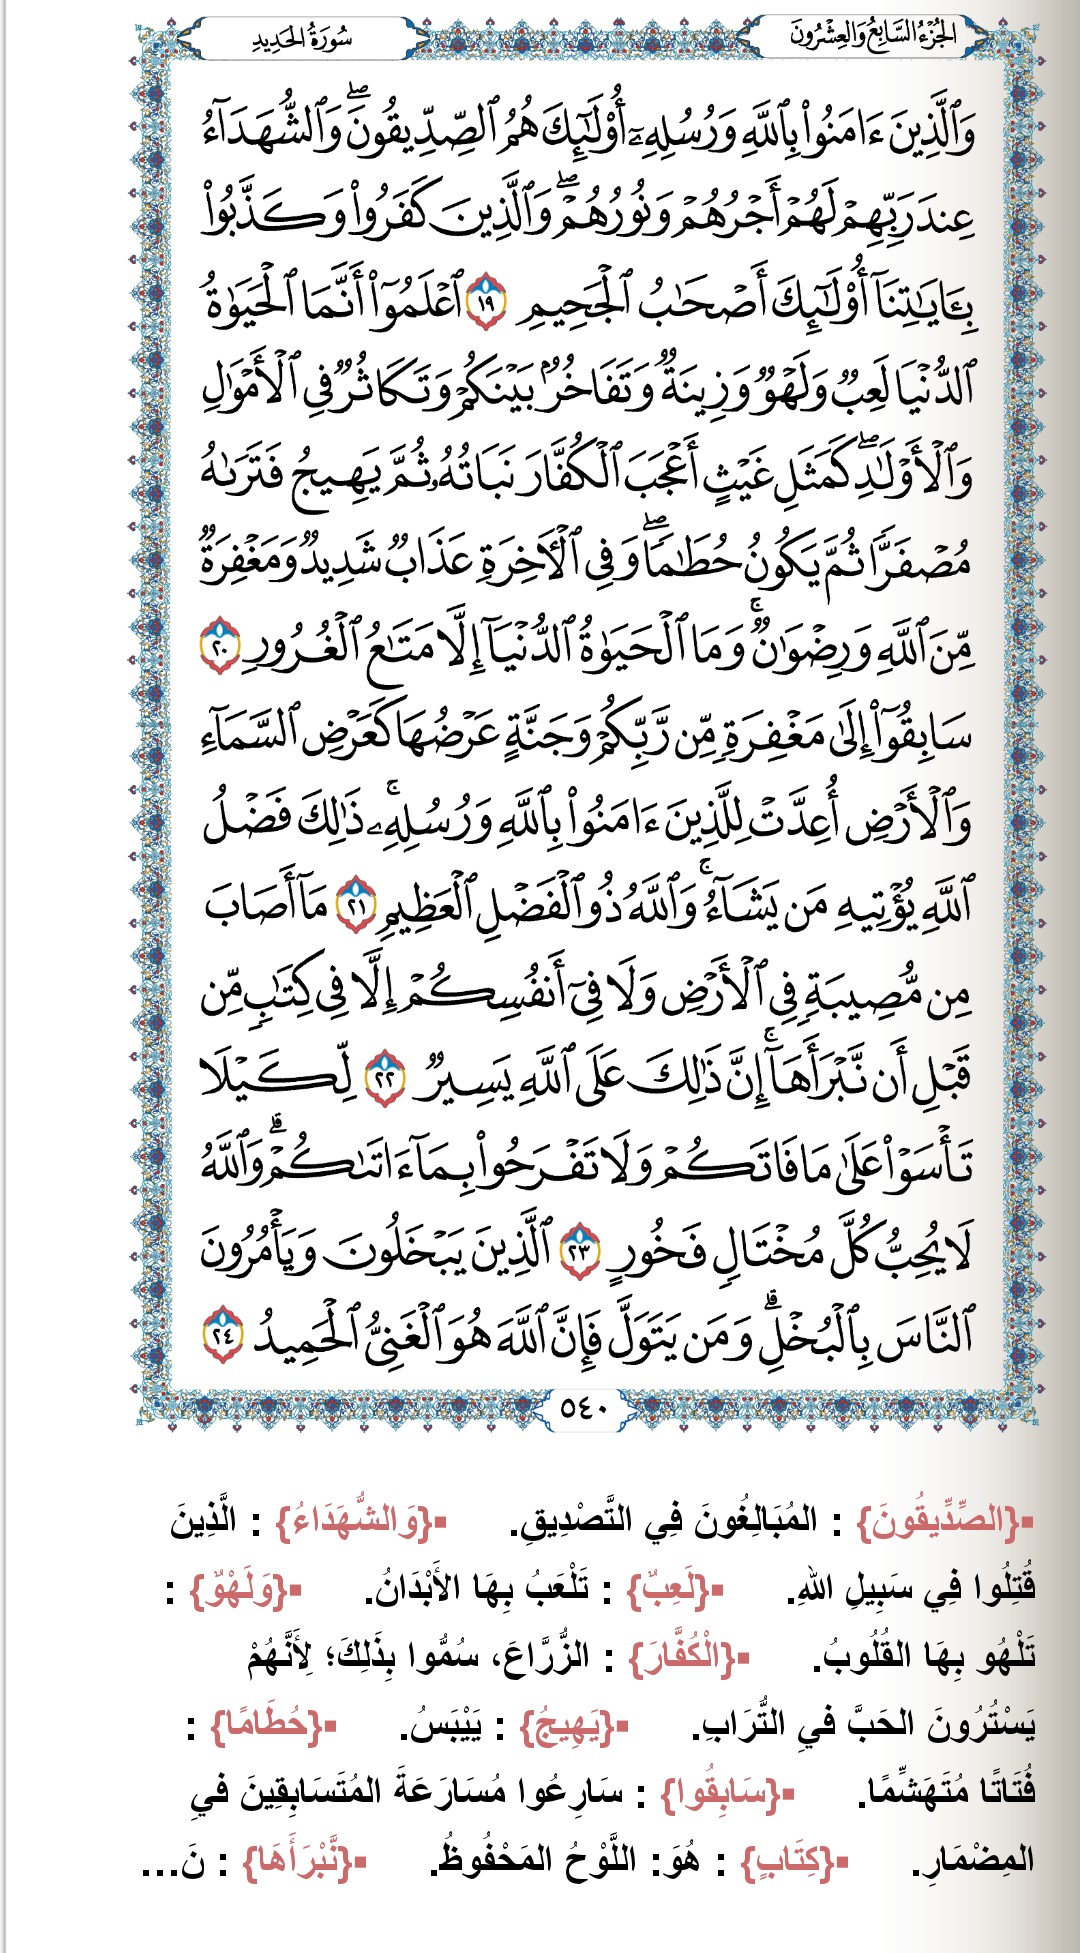 الجُزْءُ السَّابِعُ وَالعِشْرُونَ
سُورَةُ الحَدِيدِ
وَٱلَّذِينَ ءَامَنُواْ بِٱللَّهِ وَرُسُلِهِۦٓ أُوْلَٰٓئِكَ هُمُ ٱلصِّدِّيقُونَۖ وَٱلشُّهَدَآءُ
عِندَ رَبِّهِمۡ لَهُمۡ أَجۡرُهُمۡ وَنُورُهُمۡۖ وَٱلَّذِينَ كَفَرُواْ وَكَذَّبُواْ
بِـَٔايَٰتِنَآ أُوْلَٰٓئِكَ أَصۡحَٰبُ ٱلۡجَحِيمِ ١٩ ٱعۡلَمُوٓاْ أَنَّمَا ٱلۡحَيَوٰةُ
ٱلدُّنۡيَا لَعِبٞ وَلَهۡوٞ وَزِينَةٞ وَتَفَاخُرُۢ بَيۡنَكُمۡ وَتَكَاثُرٞ فِي ٱلۡأَمۡوَٰلِ
وَٱلۡأَوۡلَٰدِۖ كَمَثَلِ غَيۡثٍ أَعۡجَبَ ٱلۡكُفَّارَ نَبَاتُهُۥ ثُمَّ يَهِيجُ فَتَرَىٰهُ
مُصۡفَرّٗا ثُمَّ يَكُونُ حُطَٰمٗاۖ وَفِي ٱلۡأٓخِرَةِ عَذَابٞ شَدِيدٞ وَمَغۡفِرَةٞ
مِّنَ ٱللَّهِ وَرِضۡوَٰنٞۚ وَمَا ٱلۡحَيَوٰةُ ٱلدُّنۡيَآ إِلَّا مَتَٰعُ ٱلۡغُرُورِ ٢٠
سَابِقُوٓاْ إِلَىٰ مَغۡفِرَةٖ مِّن رَّبِّكُمۡ وَجَنَّةٍ عَرۡضُهَا كَعَرۡضِ ٱلسَّمَآءِ
وَٱلۡأَرۡضِ أُعِدَّتۡ لِلَّذِينَ ءَامَنُواْ بِٱللَّهِ وَرُسُلِهِۦۚ ذَٰلِكَ فَضۡلُ
ٱللَّهِ يُؤۡتِيهِ مَن يَشَآءُۚ وَٱللَّهُ ذُو ٱلۡفَضۡلِ ٱلۡعَظِيمِ ٢١ مَآ أَصَابَ
مِن مُّصِيبَةٖ فِي ٱلۡأَرۡضِ وَلَا فِيٓ أَنفُسِكُمۡ إِلَّا فِي كِتَٰبٖ مِّن
قَبۡلِ أَن نَّبۡرَأَهَآۚ إِنَّ ذَٰلِكَ عَلَى ٱللَّهِ يَسِيرٞ ٢٢ لِّكَيۡلَا
تَأۡسَوۡاْ عَلَىٰ مَا فَاتَكُمۡ وَلَا تَفۡرَحُواْ بِمَآ ءَاتَىٰكُمۡۗ وَٱللَّهُ
لَا يُحِبُّ كُلَّ مُخۡتَالٖ فَخُورٍ ٢٣ ٱلَّذِينَ يَبۡخَلُونَ وَيَأۡمُرُونَ
ٱلنَّاسَ بِٱلۡبُخۡلِۗ وَمَن يَتَوَلَّ فَإِنَّ ٱللَّهَ هُوَ ٱلۡغَنِيُّ ٱلۡحَمِيدُ ٢٤
٥٤٠
▪{الصِّدِّيقُونَ} : المُبَالِغُونَ فِي التَّصْدِيقِ. ▪{وَالشُّهَدَاءُ} : الَّذِينَ
قُتِلُوا فِي سَبِيلِ اللهِ. ▪{لَعِبٌ} : تَلْعَبُ بِهَا الأَبْدَانُ. ▪{وَلَهْوٌ} :
تَلْهُو بِهَا القُلُوبُ. ▪{الْكُفَّارَ} : الزُّرَّاعَ، سُمُّوا بِذَلِكَ؛ لِأَنَّهُمْ
يَسْتُرُونَ الحَبَّ فِي التُّرَابِ. ▪{يَهِيجُ} : يَيْبَسُ. ▪{حُطَامًا} :
فُتَاتًا مُتَهَشِّمًا. ▪{سَابِقُوا} : سَارِعُوا مُسَارَعَةَ المُتَسَابِقِينَ فِي
المِضْمَارِ. ▪{كِتَابٍ} : هُوَ: اللَّوْحُ المَحْفُوظُ. ▪{نَّبْرَأَهَا} : نَ...